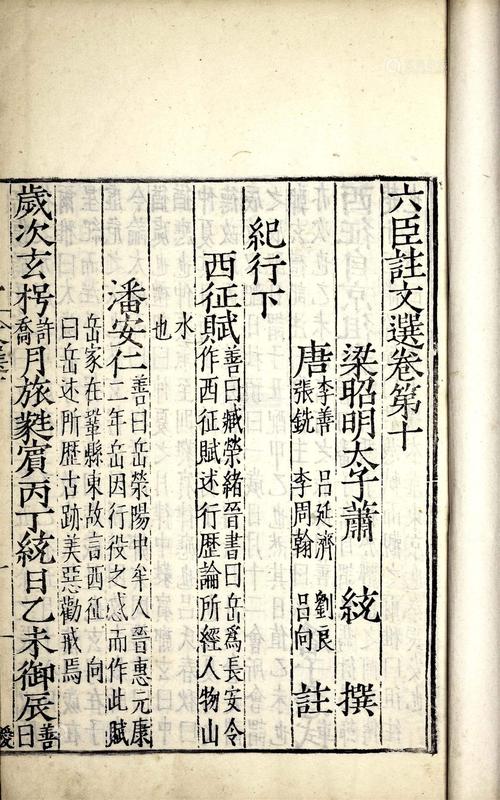 六臣註文選卷第十
梁昭明太子蕭統撰
唐李善 呂延濟 劉良
張銑 李周翰 呂向 註
紀行下
西征賦善曰臧榮緒晉書曰岳為長安令
作西征賦述行歷論所經人物山
水
也
潘安仁善曰岳滎陽中牟人晉惠元康
二年岳因行役之感而作此賦
岳家在鞏縣東故言西征 向
曰岳述所歷古跡美惡勸戒焉
歲次玄枵許喬月旅蕤賓丙丁統日乙未御辰善曰